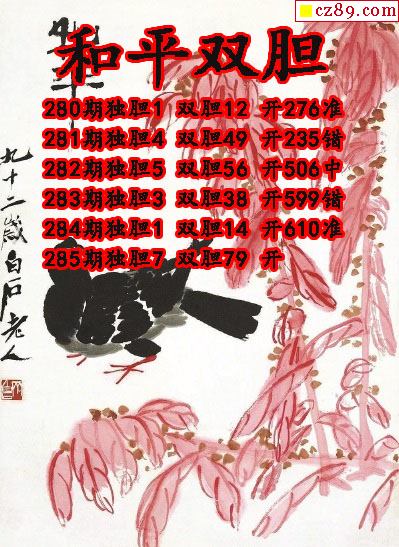 cz89.com
和平双胆
280期独胆1 双胆12 开276准
281期独胆4 双胆49 开235错
282期独胆5 双胆56 开506中
283期独胆3 双胆38 开599错
284期独胆1 双胆14 开610准
285期独胆7 双胆79 开
九十二歲白石老人